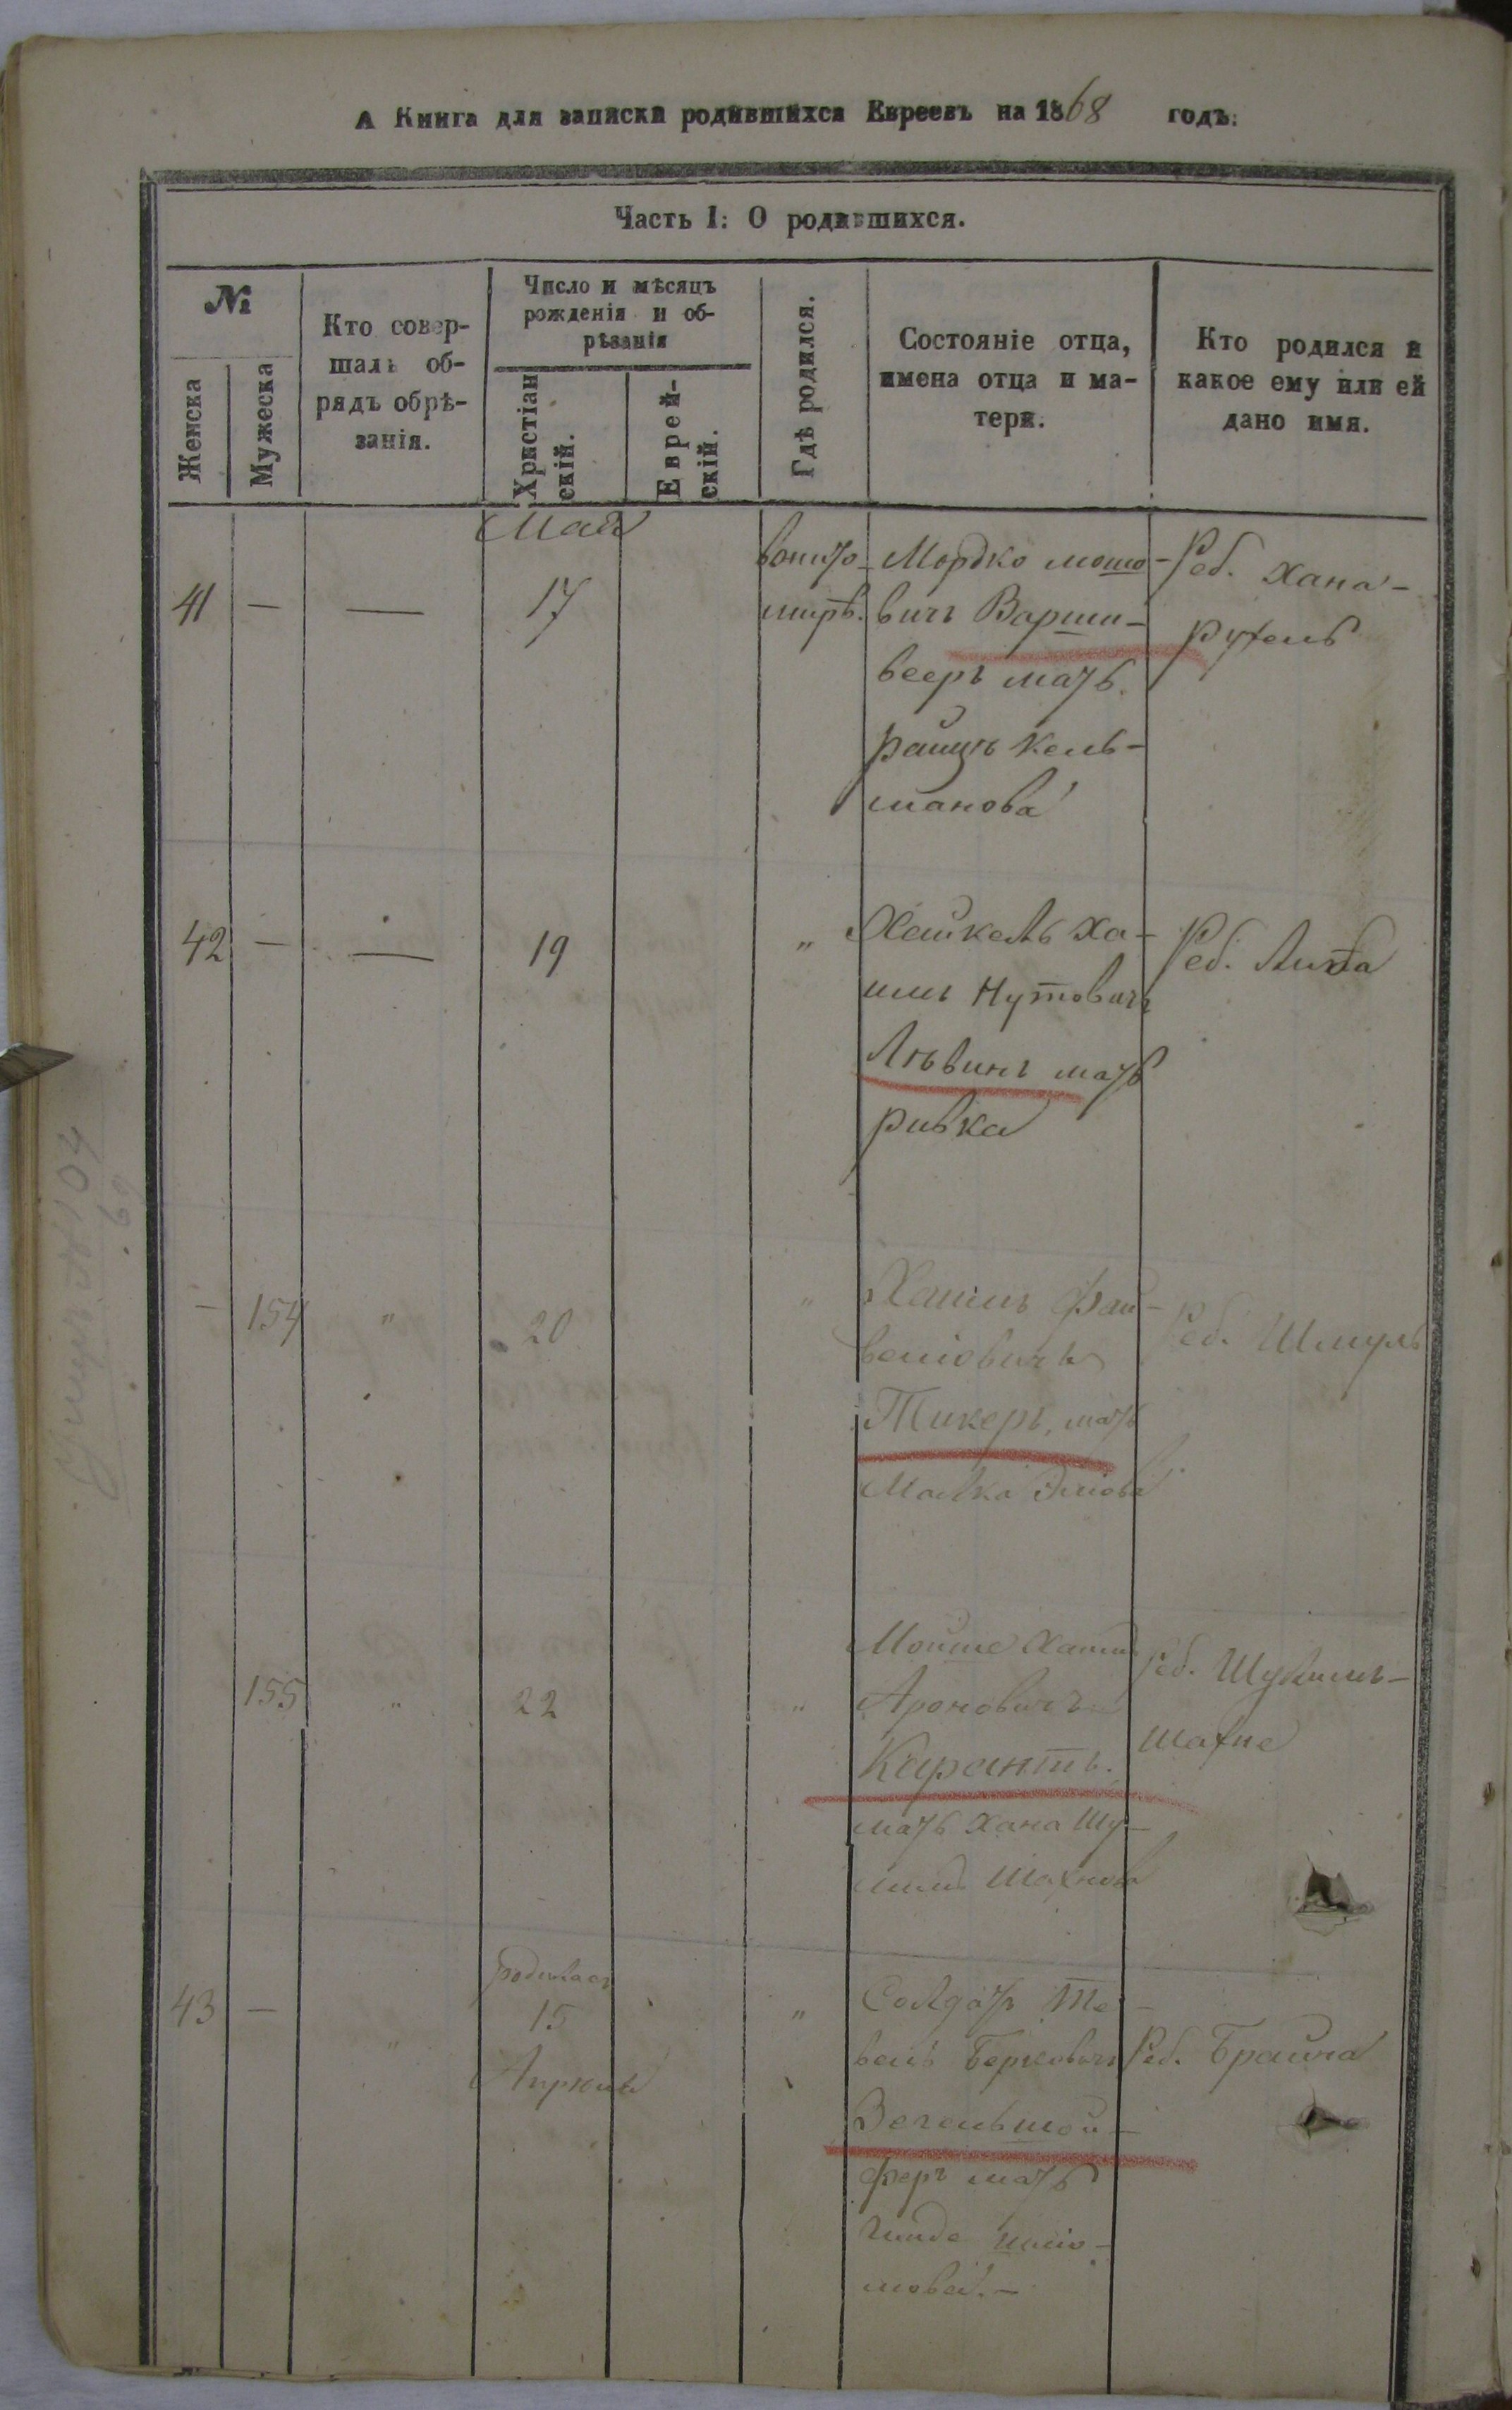 А Книга для записки родившихся Евреевъ на 1868 годъ.
Часть I: О родившихся.
№
Женска
Мужеска
Кто совер-
шалъ об-
рядъ обрѣ-
занія.
Число и мѣсяцъ
рожденія и об-
рѣзанія
Христіан
скій.
Еврей-
скій.
Гдѣ родился.
Состояніе отца,
имена отца и ма-
тери.
Кто родился и
какое ему или ей
дано имя.
Мая
41 — — 17
Мордко мошо-
вичъ Варши-
вееръ мать
кель-
манова
Реб. Хана-
рухель
42 — — 19 "
Хаимъ Нутовичъ
Лѣвинъ мать
ривка
Реб. Либа
— 154 " 20 "
Хаимъ Фай-
велiовичъ
Тикеръ, мать
Малка
Реб. Шмуль
155 " 22 "
Мойше Хаимъ
Ароновичъ
Карантъ.
мать Хана Шу-
лимъ Шахнова
Реб. Шулимъ-
шахне
43 — " родилась
15
Апрѣля
"
Солдатъ Те-
вель Берковичъ
Зегельшой-
феръ мать
Реб. Брайна